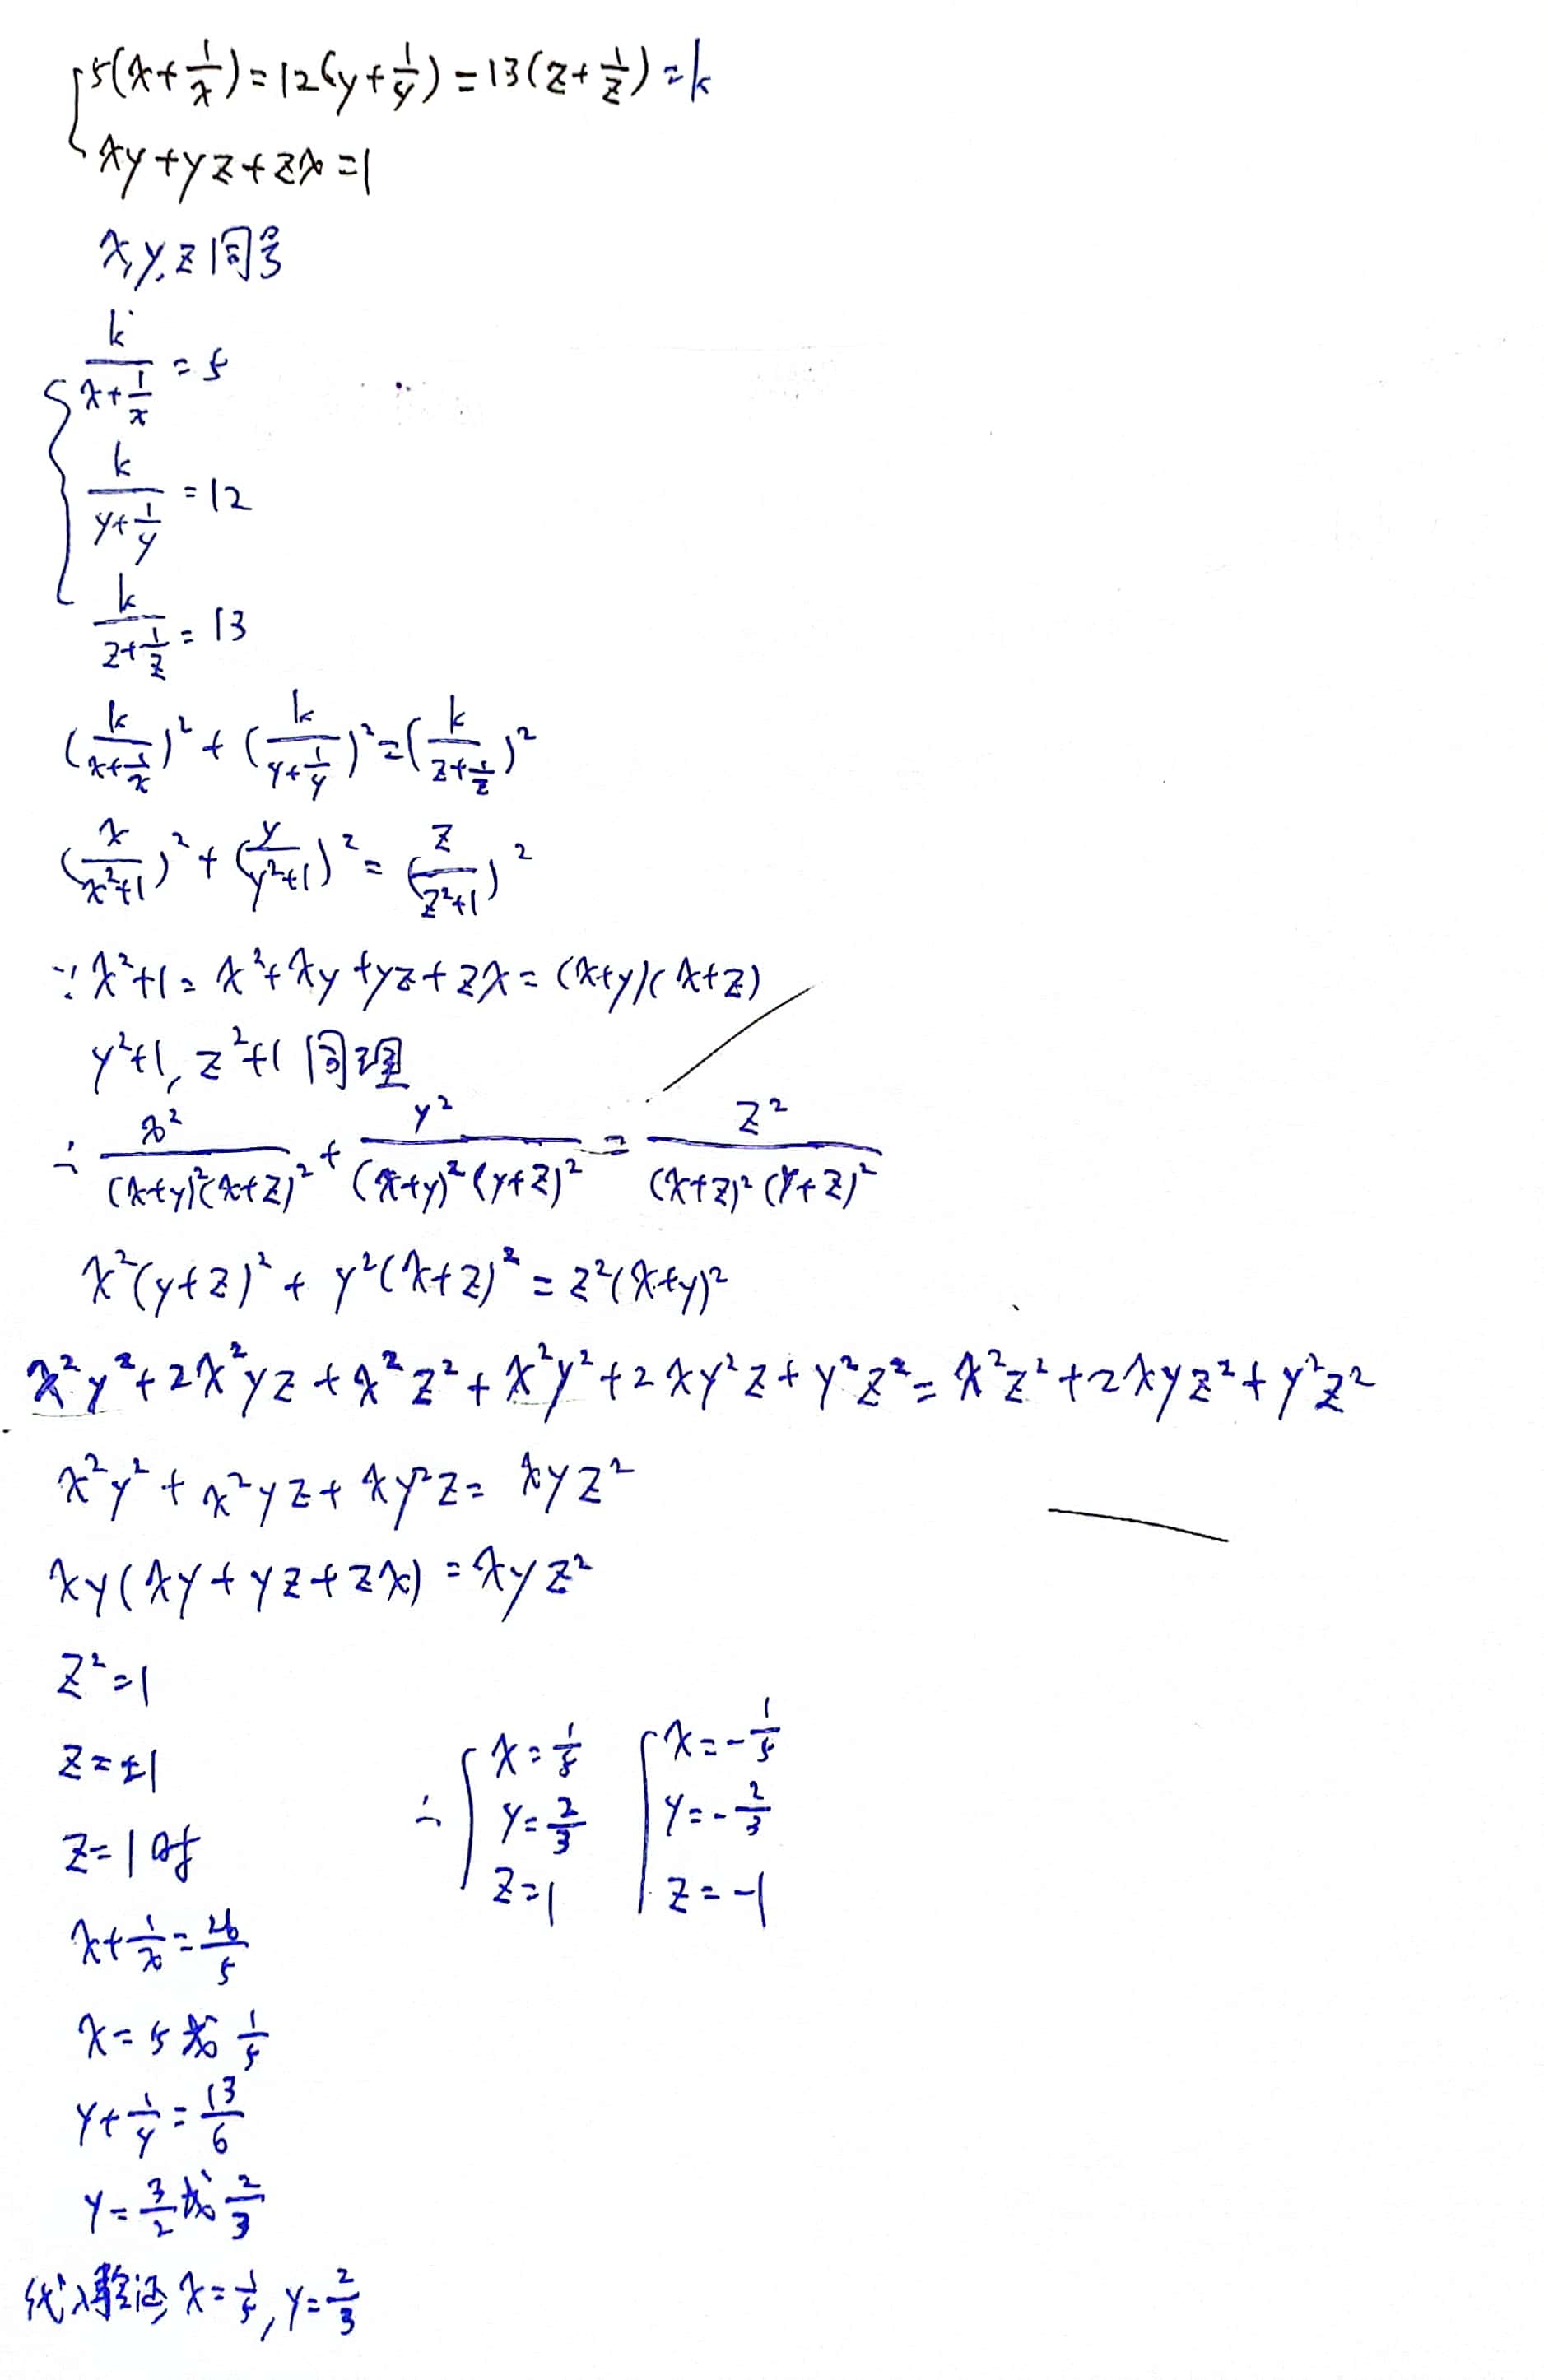 5(x+1/x)=12(y+1/y)=13(z+1/z)=k
xy+yz+zx=1
x,y,z同号
k/(x+1/x)=5
k/(y+1/y)=12
k/(z+1/z)=13
(k/(x+1/x))²+(k/(y+1/y))²=(k/(z+1/z))²
(x/(x²+1))²+(y/(y²+1))²=(z/(z²+1))²
∵x²+1=x²+xy+yz+zx=(x+y)(x+z)
y²+1,z²+1同理
∴x²/((x+y)²(x+z)²)+y²/((x+y)²(y+z)²)=z²/((x+z)²(y+z)²)
x²(y+z)²+y²(x+z)²=z²(x+y)²
x²y²+2x²yz+x²z²+x²y²+2xy²z+y²z²=x²z²+2xyz²+y²z²
x²y²+x²yz+xy²z=xyz²
xy(xy+yz+zx)=xyz²
z²=1
z=±1
z=1时
x+1/x=26/5
x=5或1/5
y+1/y=13/6
y=3/2或2/3
代入验证,x=1/5,y=2/3
∴{x=1/5 {x=-1/5
y=2/3 y=-2/3
z=1 z=-1